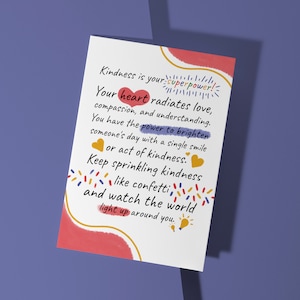 Kindness is your superpower!
Your heart radiates love,
compassion, and understanding.
You have the power to brighten
someone's day with a single smile
or act of kindness.
Keep sprinkling kindness
like confetti
and watch the world
light up around you.